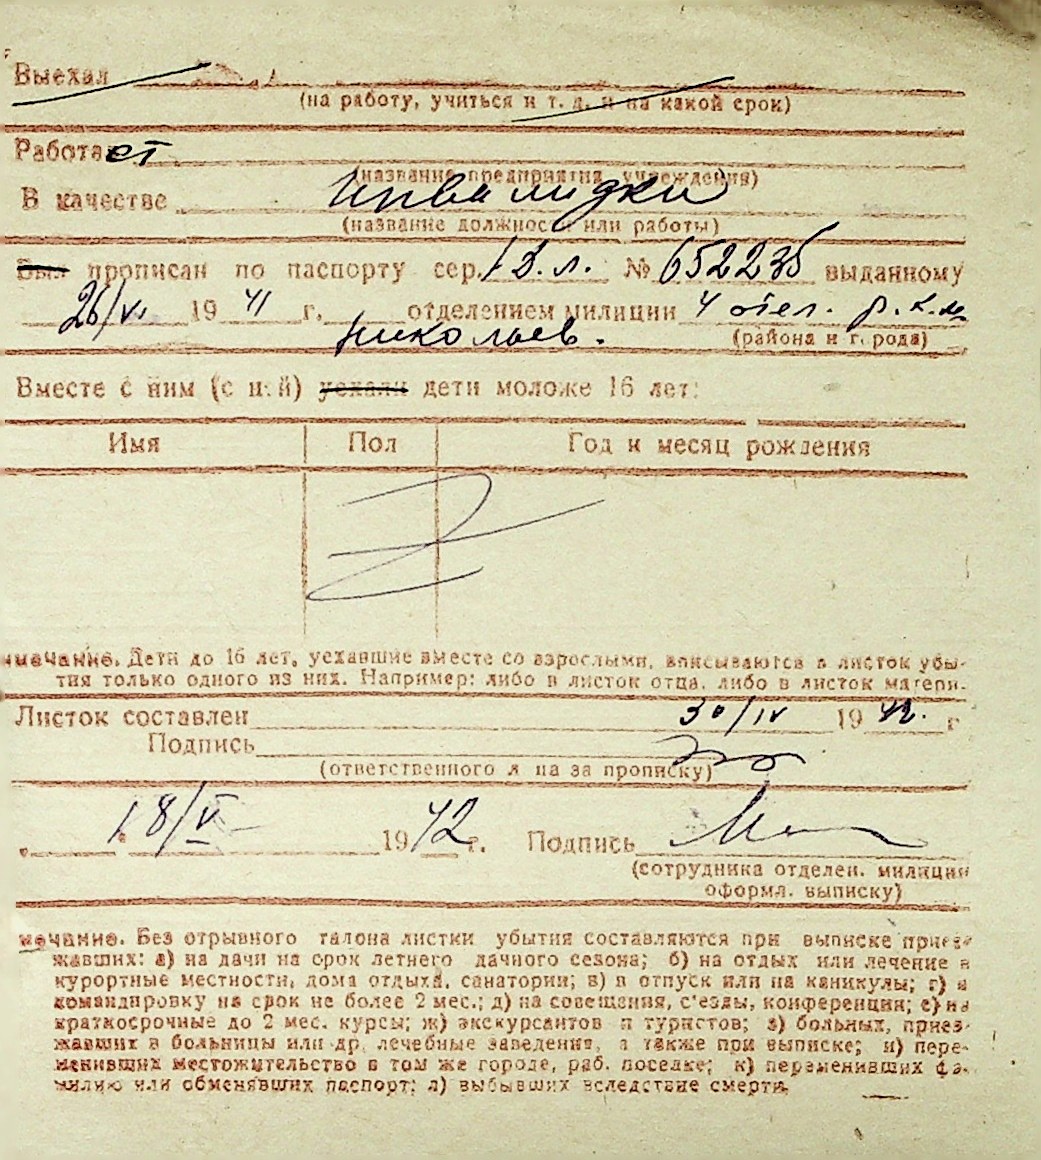 Выехал
(на работу, учиться и т. д. и на какой срок)
Работает
(название предприятия, учреждения)
В качестве инвалидки
(название должности или работы)
Был прописан по паспорту сер. № 652235 выданному
26/VI 19 41 г. отделением милиции 4 отел. р.к.м.
Николаев.
(района и города)
Вместе с ним (с ней) уехали дети моложе 16 лет:
Имя Пол Год и месяц рождения
имечание. Дети до 16 лет, уехавшие вместе со взрослыми, вписываются в листок убы-
тия только одного из них. Например: либо в листок отца, либо в листок матери.
Листок составлен 30/IV 19 42. г
Подпись
(ответственного л ца за прописку)
18/V 19 42 г. Подпись
(сотрудника отделен. милиции
оформл. выписку)
мечание. Без отрывного талона листки убытия составляются при выписке приез-
жавших: а) на дачи на срок летнего дачного сезона; б) на отдых или лечение в
курортные местности, дома отдыха, санатории; в) в отпуск или на каникулы; г) в
командировку на срок не более 2 мес.; д) на совещания, с'езды, конференции; е) на
краткосрочные до 2 мес. курсы; ж) экскурсантов и туристов; з) больных, приез-
жавших в больницы или др. лечебные заведения, а также при выписке; и) пере-
менивших местожительство в том же городе, раб. поселке; к) переменивших фа-
милию или обменявших паспорт; л) выбывших вследствие смерти.